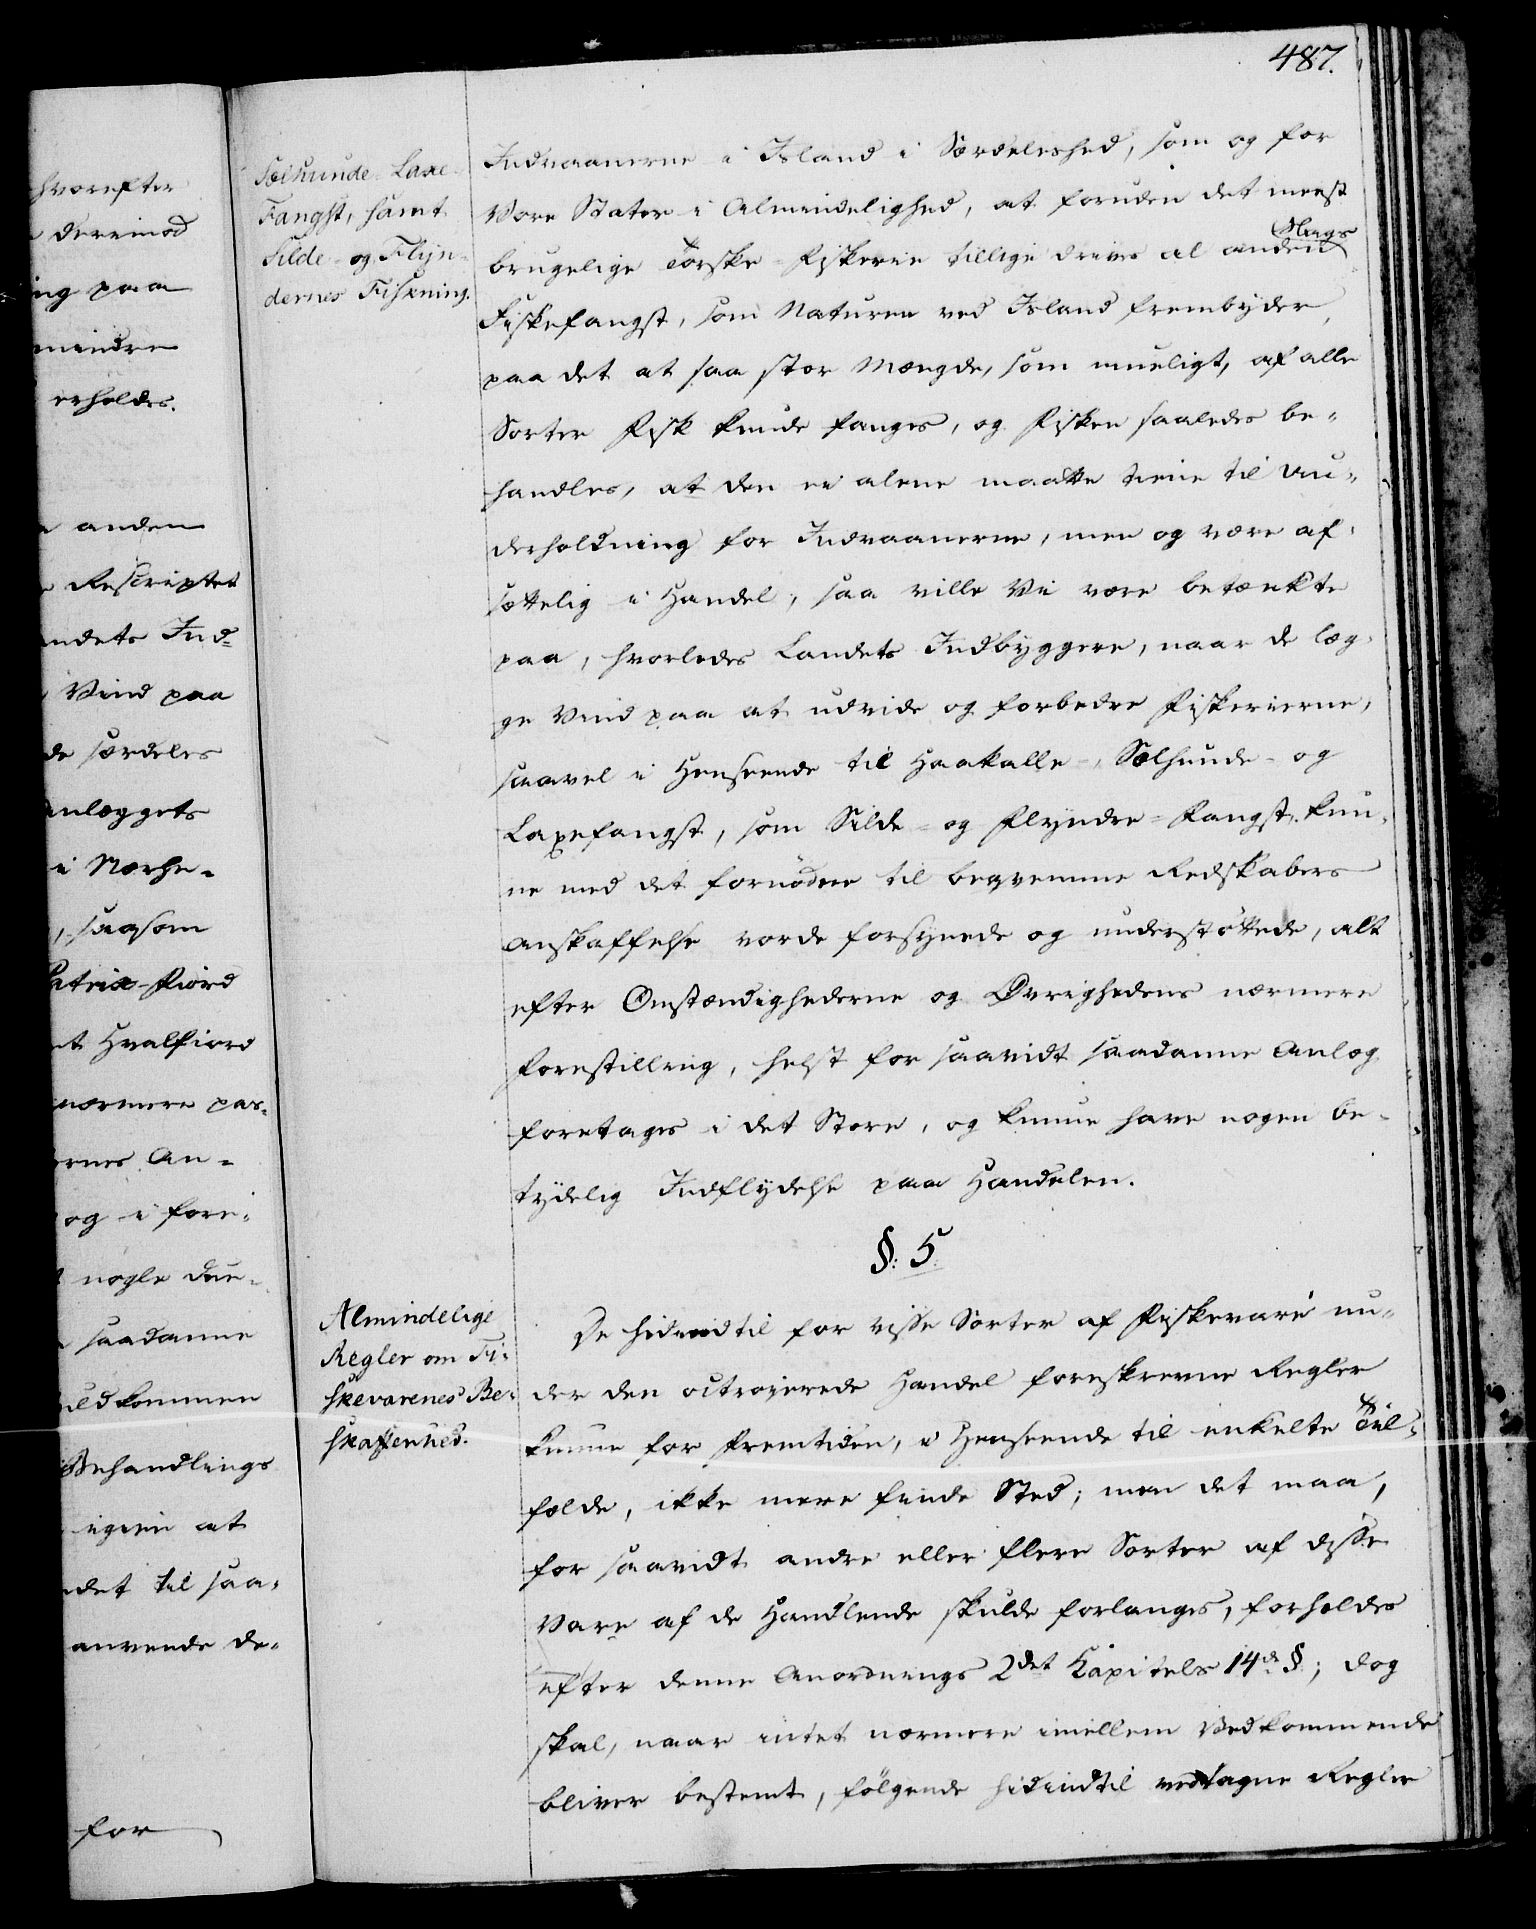 487.
hvorefter
derimod
ing paa
mindre
erholdes.
anden
Rescriptet
andets Ind-
Vind paa
de særdeles
anlæggets
i Nærhe-
, saasom
Patrix-Fiord
et Hvalfiord
nærmere pas-
ernes An-
og i fore-
nogle Dun-
saadanne
uldkommen
Behandlings
igien at
det til saa-
anvende de-
for
Sælhunde- Laxe-
Fangst, samt
Silde- og Flyn-
dernes Fiskning.
Indvaanerne i Island i Særdeleshed, som og for
Vore Stater i Almindelighed, at foruden det meest
brugelige Torske-Fiskerie tillige drives al anden Slags
Fiskefangst, som Naturen ved Island frembyder,
paa det at saa stor Mængde, som mueligt, af alle
Sorter Fisk kunde fanges, og Fisken saaledes be-
handles, at den ei alene maatte tiene til Un-
derholdning for Indvaanerne, men og være af-
sættelig i Handel, saa ville Vi være betænkte
paa, hvorledes Landets Indbyggere, naar de læg-
ge Vind paa at udvide og forbedre Fiskerierne,
saavel i Henseende til Haakalle-, Sælhunde- og
Laxefangst, som Silde- og Flyndre-Fangst kun-
ne med det fornødne til beqvemme Redskabers
Anskaffelse vorde forsynede og understøttede, alt
efter Omstændighederne og Øvrighedens nærmere
Forestilling, helst for saavidt saadanne Anlæg
foretages i det Store, og kunne have nogen be-
tydelig Indflydelse paa Handelen.
§. 5.
Almindelige
Regler om Fi-
skevarenes Be-
skaffenhed.
De hidindtil for visse Sorter af Fiskevare un-
der den octroierede Handel foreskrevne Regler
kunne for Fremtiden, i Henseende til enkelte Til-
fælde, ikke mere finde Sted; men det maa,
for saavidt andre eller flere Sorter af disse
Vare af de Handlende skulde forlanges, forholdes
efter denne Anordnings 2det Kapitels 14de §.; dog
skal, naar intet nærmere imellem Vedkommende
bliver bestemt, følgende hidindtil vedtagne Regler